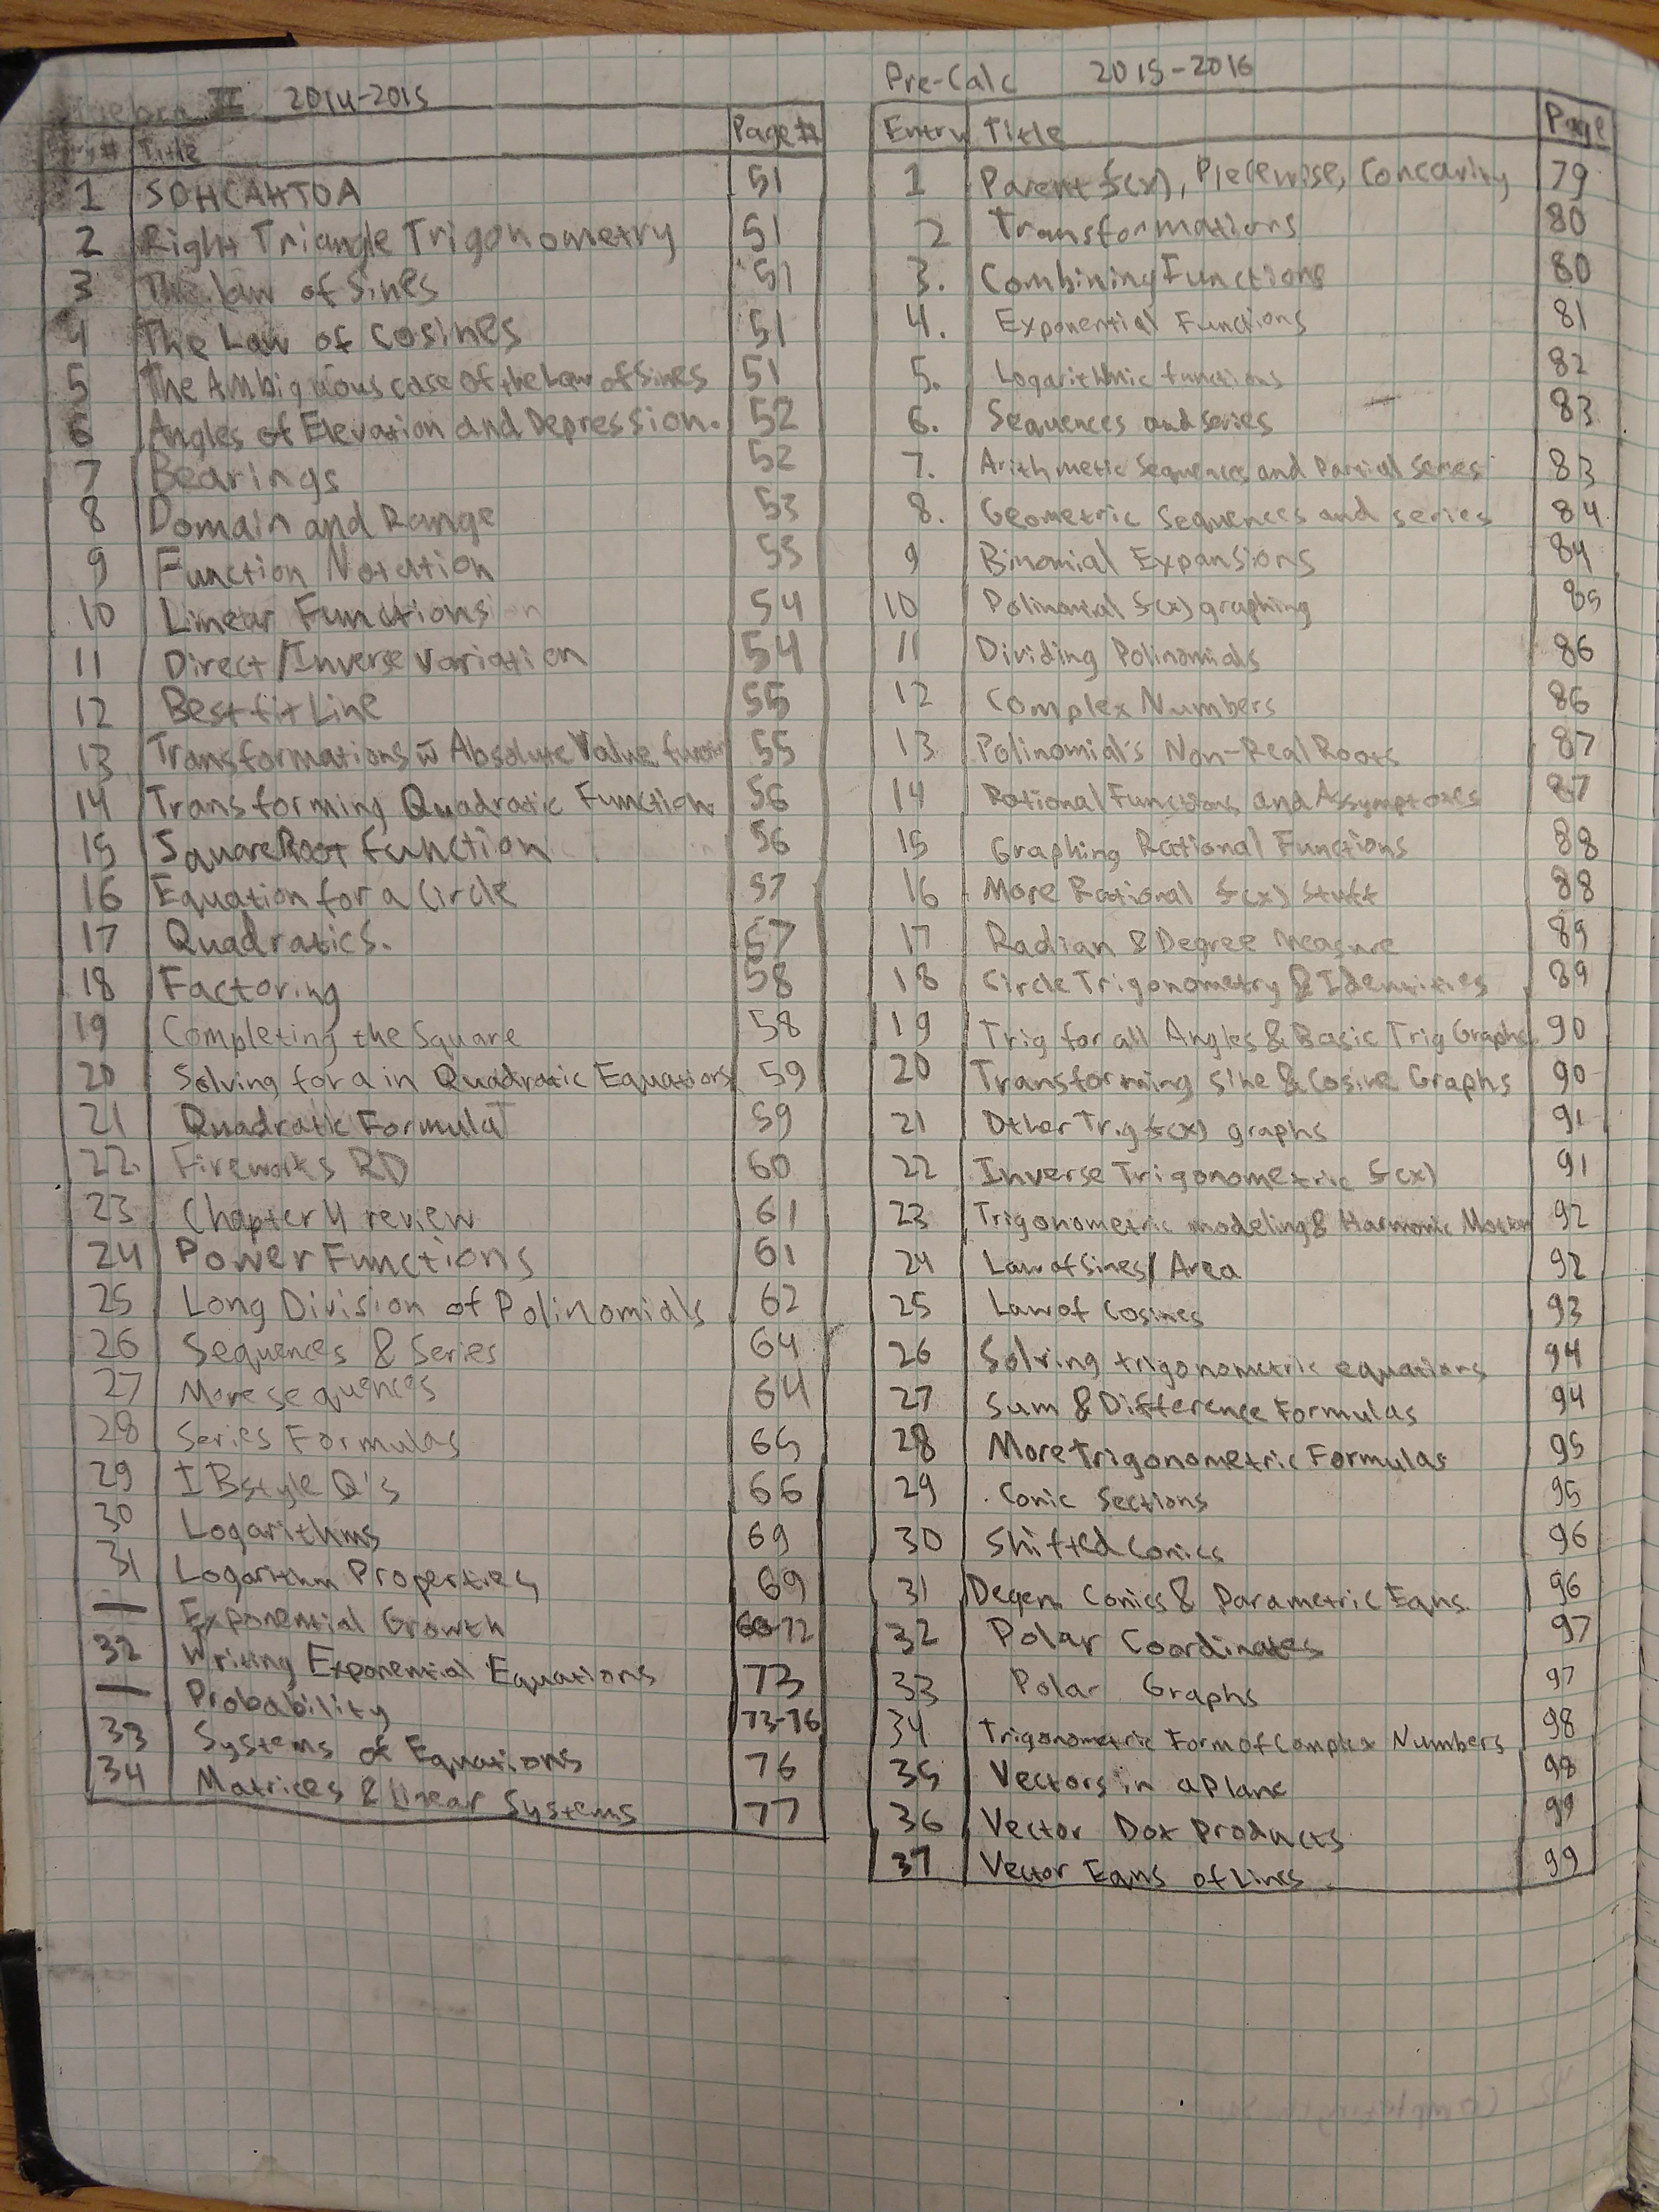 Algebra II 2014-2015
Entry# Title Page #
1 SOHCAHTOA 51
2 Right Triangle Trigonometry 51
3 The law of Sines 51
4 The Law of Cosines 51
5 The Ambiguous case of the Law of Sines 51
6 Angles of Elevation and Depression. 52
7 Bearings 52
8 Domain and Range 53
9 Function Notation 53
10 Linear Functions 54
11 Direct/Inverse Variation 54
12 Best fit Line 55
13 Transformations w Absolute Value 55
14 Transforming Quadratic Function 56
15 Square Root Function 56
16 Equation for a Circle 57
17 Quadratics. 57
18 Factoring 58
19 Completing the Square 58
20 Solving for a in Quadratic Equations 59
21 Quadratic Formula 59
22. Fireworks RD 60
23 Chapter 4 review 61
24 Power Functions 61
25 Long Division of Polinomials 62
26 Sequences & Series 64
27 More sequences 64
28 Series Formulas 65
29 IB style Q's 66
30 Logarithms 69
31 Logarithm Properties 69
— Exponential Growth 72
32 Writing Exponential Equations 73
— Probability 73-76
33 Systems of Equations 76
34 Matrices & Linear Systems 77
Pre-Calc 2015-2016
Entry Title Page
1 Parent f(x), Piecewise, Concavity 79
2 Transformations 80
3. Combining Functions 80
4. Exponential Functions 81
5. Logarithmic functions 82
6. Sequences and series 83
7. Arithmetic Sequences and Partial Series 83
8. Geometric Sequences and series 84
9 Binomial Expansions 84
10 Polinomial f(x) graphing 85
11 Dividing Polinomials 86
12 Complex Numbers 86
13 Polinomial's Non-Real Roots 87
14 Rational Functions and Assymptotes 87
15 Graphing Rational Functions 88
16 More Rational f(x) stuff 88
17 Radian & Degree Measure 89
18 Circle Trigonometry & Identities 89
19 Trig for all Angles & Basic Trig Graphs 90
20 Transforming Sine & Cosine Graphs 90
21 Other Trig f(x) graphs 91
22 Inverse Trigonometric f(x) 91
23 Trigonometric modeling & Harmonic Motion 92
24 Law of Sines/Area 92
25 Law of Cosines 93
26 Solving trigonometric equations 94
27 Sum & Difference Formulas 94
28 More Trigonometric Formulas 95
29 Conic Sections 95
30 Shifted Conics 96
31 Degen. Conics & Parametric Eqns. 96
32 Polar Coordinates 97
33 Polar Graphs 97
34 Trigonometric Form of Complex Numbers 98
35 Vectors in a Plane 98
36 Vector Dot Products 99
37 Vector Eqns of Lines. 99